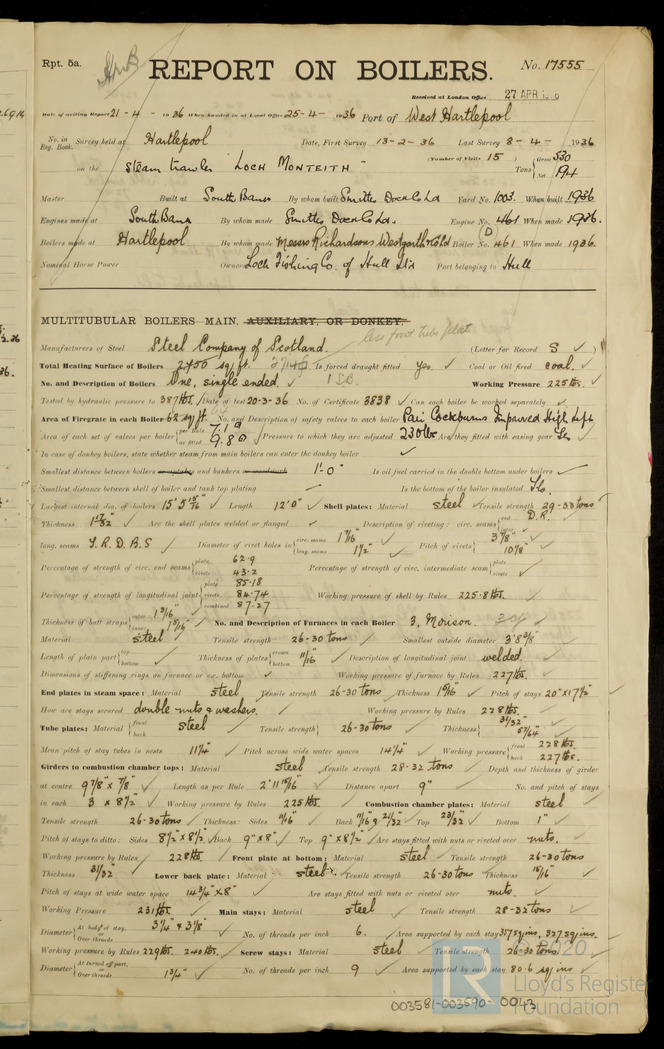 Rpt. 5a.
REPORT ON BOILERS.
No. 17555
Received at London Office 27 APR
Date of writing Report 21-4-1936 When handed in at Local Office 25-4-1936 Port of West Hartlepool
No. in Reg. Book. Survey held at Hartlepool Date, First Survey 13-2-36 Last Survey 8-4-1936
(Number of Visits 15)
on the Steam trawler "LOCH MONTEITH" Tons Gross 530 Net 194
Master Built at South Bank By whom built Smiths Dock Co Ld Yard No. 1003 When built 1936
Engines made at South Bank By whom made Smiths Dock Co Ld. Engine No. 461 When made 1936.
Boilers made at Hartlepool By whom made Messrs Richardsons Westgarth & Co Ld Boiler No. 461 When made 1936.
Nominal Horse Power Owners Loch Fishing Co. of Hull Ltd Port belonging to Hull
MULTITUBULAR BOILERS MAIN, AUXILIARY, OR DONKEY.
less front tube plate
Manufacturers of Steel Steel Company of Scotland. (Letter for Record S)
Total Heating Surface of Boilers 2750 sq ft. Is forced draught fitted Yes. Coal or Oil fired coal.
No. and Description of Boilers One, single ended. 1 SB Working Pressure 225 lbs.
Tested by hydraulic pressure to 387 lbs. Date of test 20-3-36 No. of Certificate 3838 Can each boiler be worked separately
Area of Firegrate in each Boiler 62 sq ft. No. and Description of safety valves to each boiler Pair Cockburns Improved High Lift
Area of each set of valves per boiler per Rule 7.1 as fitted 9.80 Pressure to which they are adjusted 230 lbs Are they fitted with easing gear Yes
In case of donkey boilers, state whether steam from main boilers can enter the donkey boiler
Smallest distance between boilers or uptakes and bunkers or woodwork 1'-0" Is oil fuel carried in the double bottom under boilers
Smallest distance between shell of boiler and tank top plating Is the bottom of the boiler insulated Yes.
Largest internal dia. of boilers 15' 5 15/16" Length 12'0" Shell plates: Material steel Tensile strength 29-33 tons
Thickness 1 17/32" Are the shell plates welded or flanged Description of riveting: circ. seams end D.R.
long. seams T.R.D.B.S Diameter of rivet holes in circ. seams 1 7/16" long. seams 1 1/2" Pitch of rivets 3 7/8" 10 7/8"
Percentage of strength of circ. end seams plate 62.9 rivets 43.2 Percentage of strength of circ. intermediate seam plate rivets
Percentage of strength of longitudinal joint plate 85.18 rivets 84.74 combined 87.27 Working pressure of shell by Rules 225.8 lbs.
Thickness of butt straps outer 1 3/16" inner 1 5/16" No. and Description of Furnaces in each Boiler 3, Morison.
Material steel Tensile strength 26-30 tons Smallest outside diameter 3' 8 3/8"
Length of plain part top bottom Thickness of plates crown bottom 11/16" Description of longitudinal joint welded.
Dimensions of stiffening rings on furnace or c.c. bottom Working pressure of furnace by Rules 227 lbs.
End plates in steam space: Material steel Tensile strength 26-30 tons Thickness 1 5/16" Pitch of stays 20" x 17 1/2"
How are stays secured double nuts & washers. Working pressure by Rules 228 lbs.
Tube plates: Material front back steel Tensile strength 26-30 tons Thickness 31/32" 57/64"
Mean pitch of stay tubes in nests 11 1/4" Pitch across wide water spaces 14 1/4" Working pressure front 228 lbs. back 227 lbs.
Girders to combustion chamber tops: Material steel Tensile strength 28-32 tons Depth and thickness of girder
at centre 9 7/8" x 7/8" Length as per Rule 2' 11 15/16" Distance apart 9" No. and pitch of stays
in each 3 x 8 1/2" Working pressure by Rules 225 lbs. Combustion chamber plates: Material steel
Tensile strength 26-30 tons Thickness: Sides 11/16" Back 11/16 & 21/32" Top 23/32" Bottom 1"
Pitch of stays to ditto: Sides 8 1/2" x 8 1/2" Back 9" x 8" Top 9" x 8 1/2" Are stays fitted with nuts or riveted over nuts.
Working pressure by Rules 228 lbs. Front plate at bottom: Material steel Tensile strength 26-30 tons
Thickness 31/32" Lower back plate: Material steel. Tensile strength 26-30 tons Thickness 15/16"
Pitch of stays at wide water space 14 3/4" x 8" Are stays fitted with nuts or riveted over nuts.
Working Pressure 231 lbs. Main stays: Material steel Tensile strength 28-32 tons
Diameter At body of stay, or Over threads 3 1/4" & 3 3/8" No. of threads per inch 6. Area supported by each stay 357 sq ins, 327 sq ins.
Working pressure by Rules 229 lbs. 240 lbs. Screw stays: Material steel Tensile strength 26-30 tons.
Diameter At turned off part, or Over threads 1 3/4" No. of threads per inch 9 Area supported by each stay 80.6 sq ins
© 2020
LR
Lloyd's Register
Foundation
003581-003590-0043